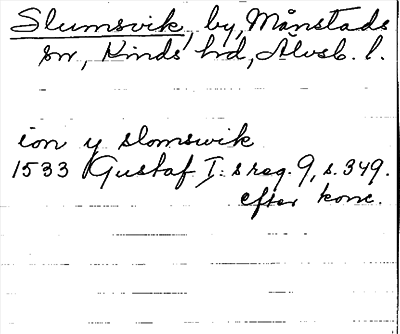 Slumsvik, by, Månstads
sn, Kinds hd, Älvsb. l.
ion y slomswik
1533 Gustaf I:s reg. 9, s. 349.
efter konc.